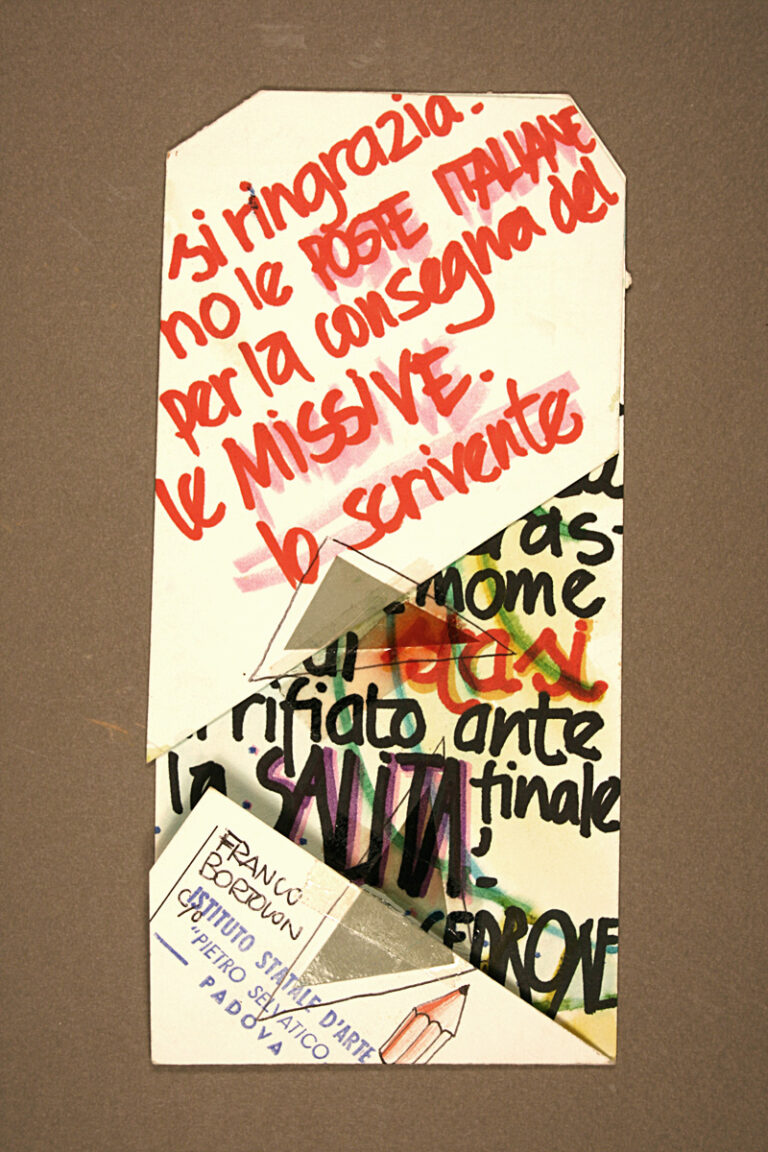 si ringrazia-
no le POSTE ITALIANE
per la consegna del
le MISSIVE.
lo scrivente
as-
mome
di quasi
rifiato ante
la SALITA finale
CEDRONE
FRANCO
BORTOLON
c/o
ISTITUTO STATALE D'ARTE
"PIETRO SELVATICO
PADOVA